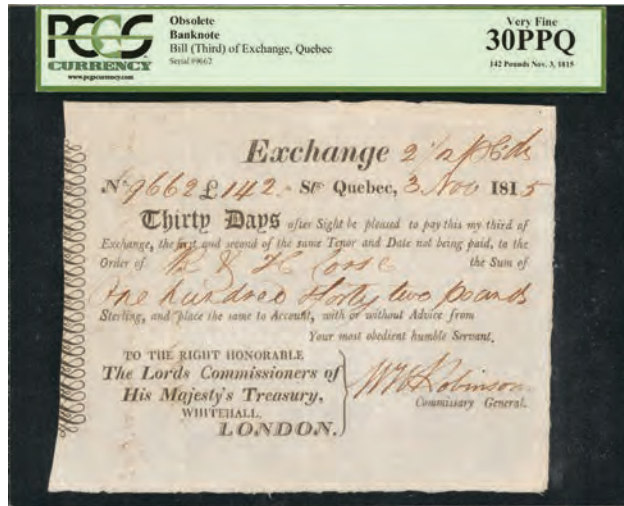 PCGS
CURRENCY
www.pcgscurrency.com
Obsolete
Banknote
Bill (Third) of Exchange, Quebec
Serial #9662
Very Fine
30PPQ
142 Pounds Nov. 3, 1815
Exchange 2 1/2
No. 9662 £142 .. Stg Quebec, 3 Nov 1815
Thirty Days after Sight be pleased to pay this my third of
Exchange, the first and second of the same Tenor and Date not being paid, to the
Order of B & H the Sum of
One hundred forty two pounds
Sterling, and place the same to Account, with or without Advice from
Your most obedient humble Servant,
TO THE RIGHT HONORABLE
The Lords Commissioners of
His Majesty's Treasury,
WHITEHALL,
LONDON.
WH Robinson
Commissary General.